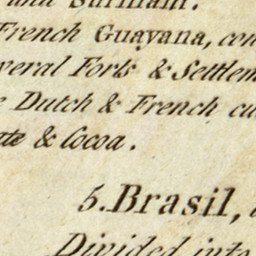 and Surinam.
French Guayana, con
veral Forts & Settlem
e Dutch & French cu
ate & Cocoa.
5. Brasil,
Divided into